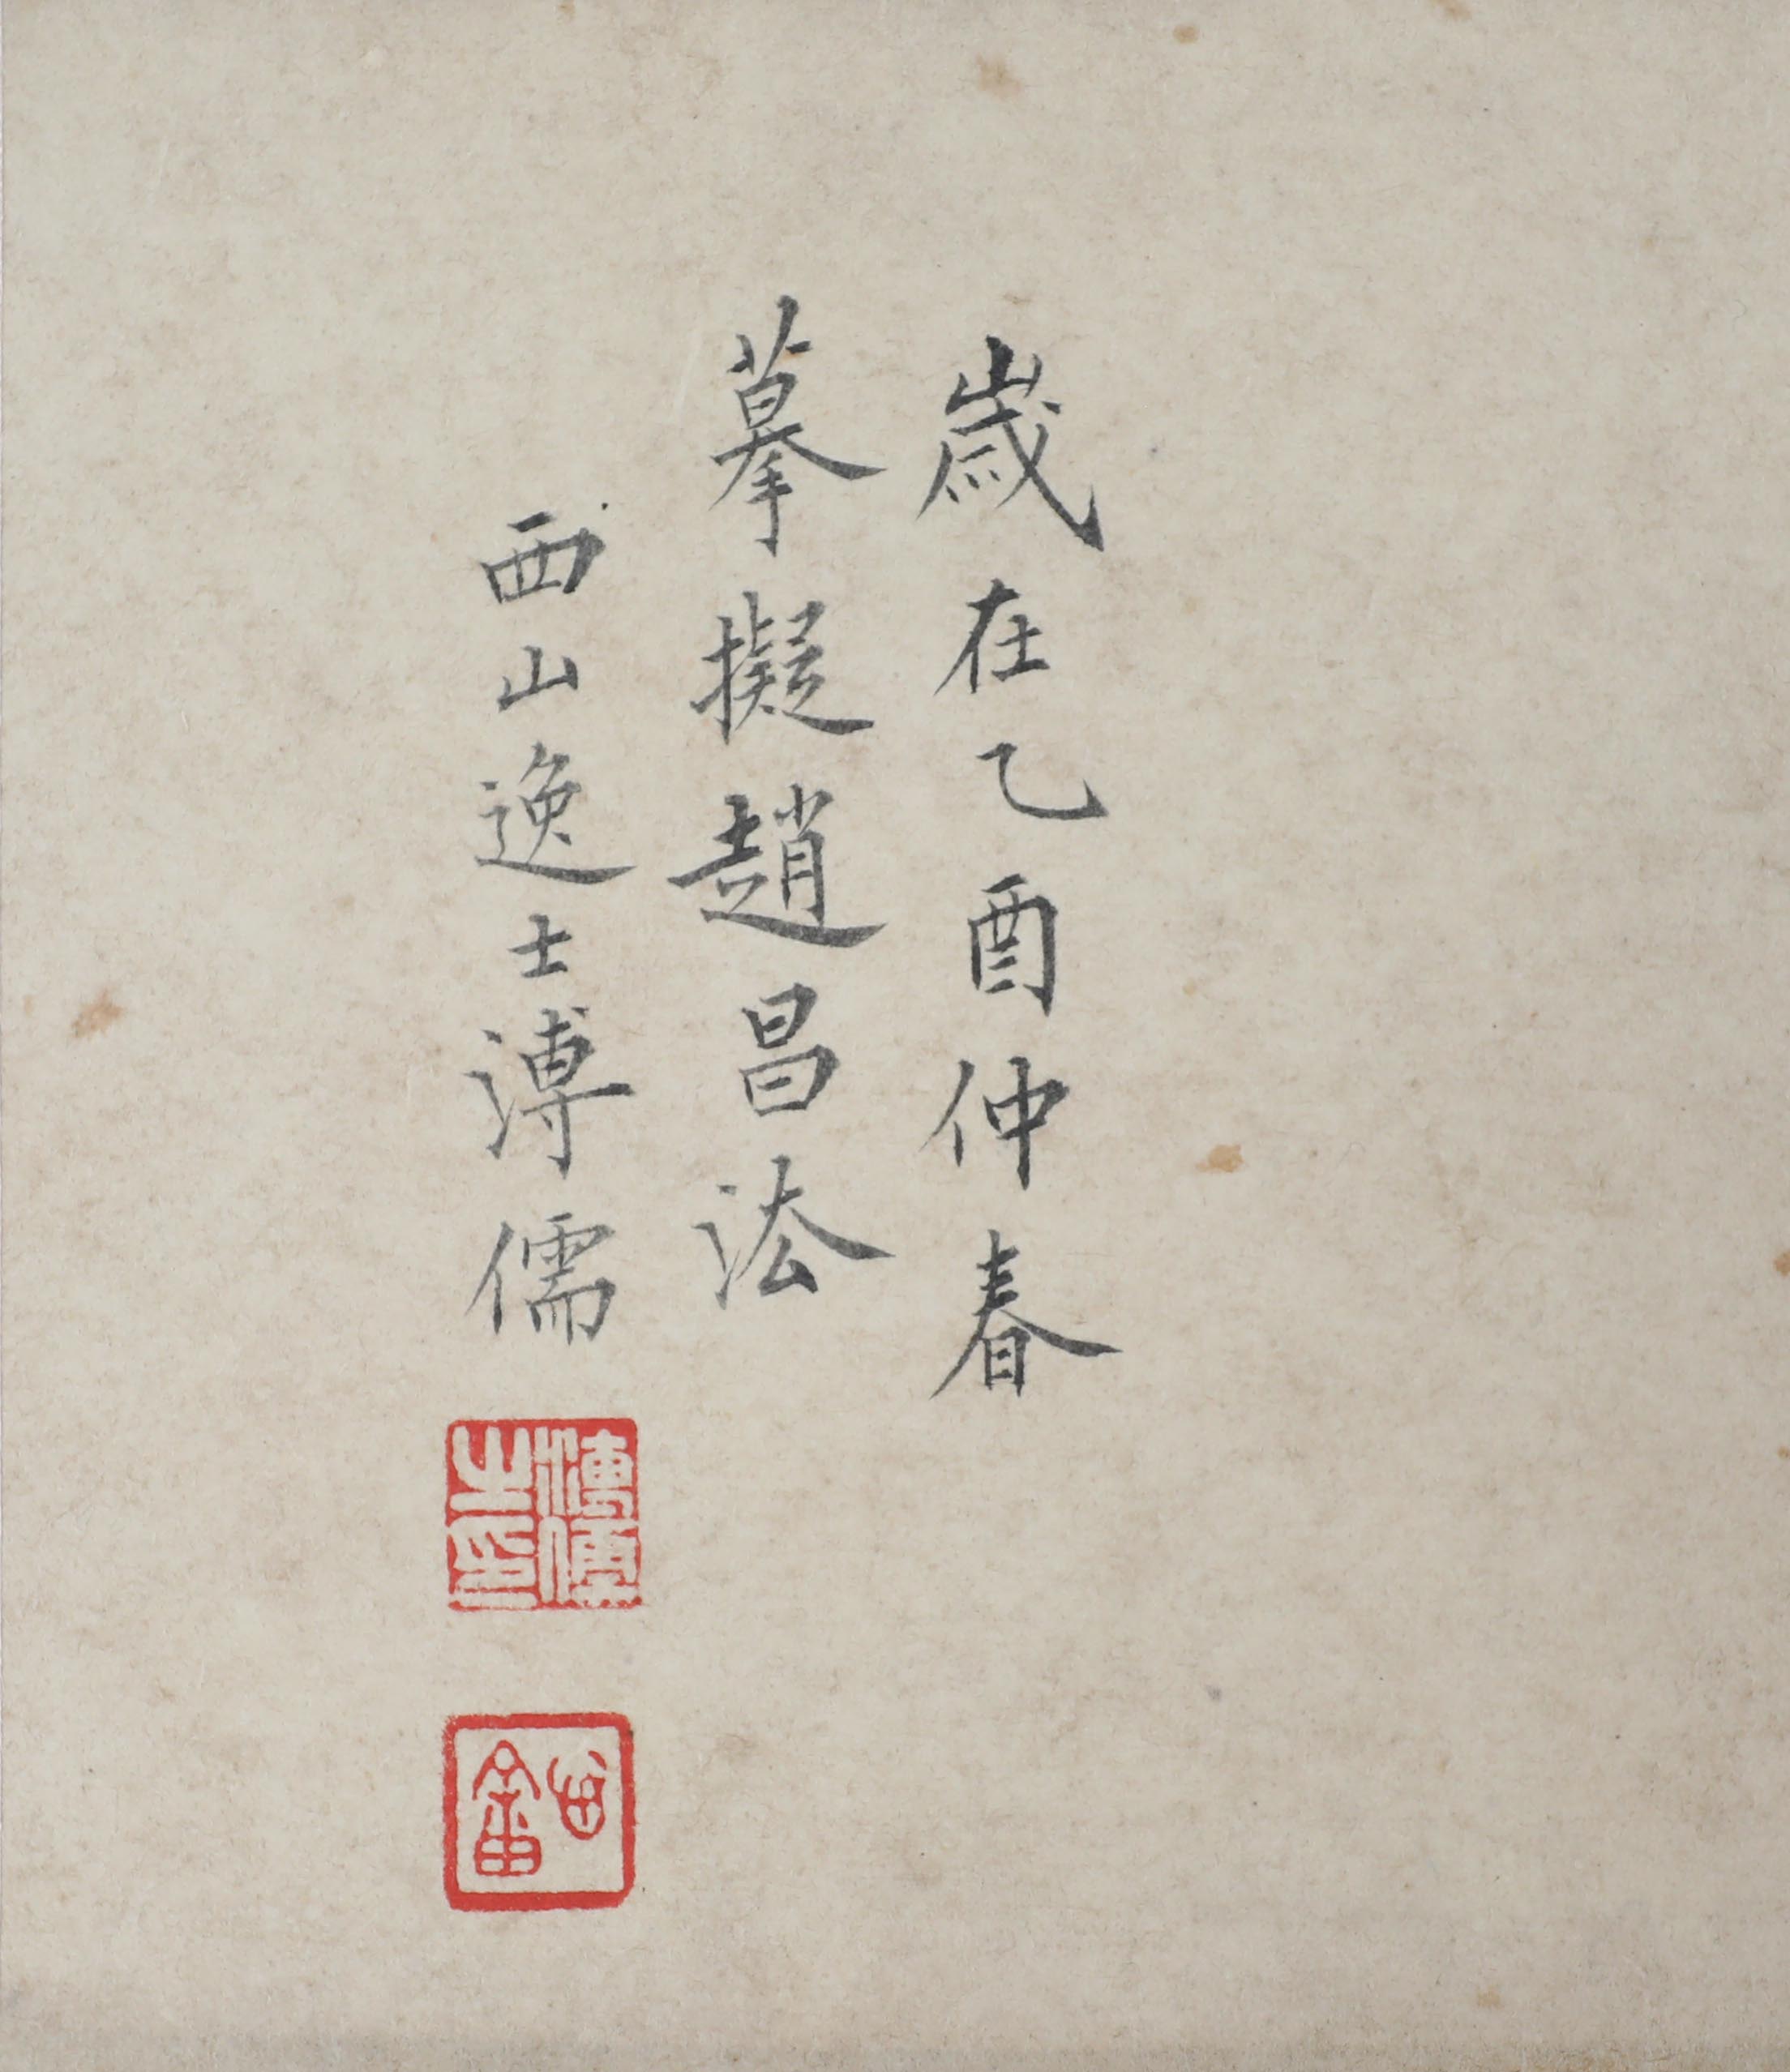 歲在乙酉仲春
摹擬趙昌法
西山逸士溥儒
溥儒之印